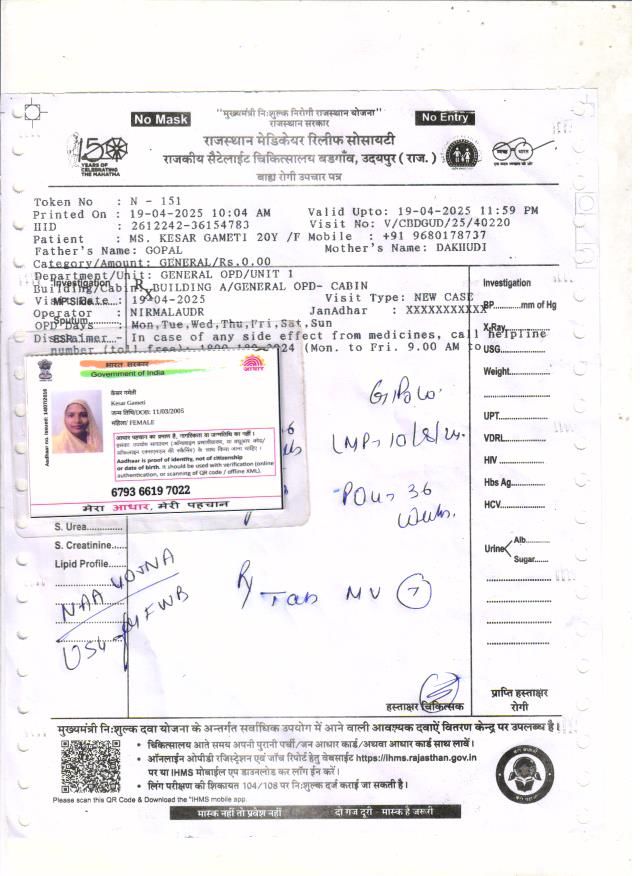 No Mask
"मुख्यमंत्री नि:शुल्क निरोगी राजस्थान योजना"
राजस्थान सरकार
No Entry
150
YEARS OF
CELEBRATING
THE MAHATMA
राजस्थान मेडिकेयर रिलीफ सोसायटी
राजकीय सैटेलाईट चिकित्सालय बडगाँव, उदयपुर ( राज. )
बाह्य रोगी उपचार पत्र
Token No : N - 151
Printed On : 19-04-2025 10:04 AM Valid Upto: 19-04-2025 11:59 PM
HID : 2612242-36154783 Visit No: V/CBDGUD/25/40220
Patient : MS. KESAR GAMETI 20Y /F Mobile : +91 9680178737
Father's Name: GOPAL Mother's Name: DAKHUDI
Category/Amount: GENERAL/Rs.0.00
Department/Unit: GENERAL OPD/UNIT 1
Investigation
Rx
Building/Cabin: BUILDING A/GENERAL OPD- CABIN
Investigation
Visit Date : 19-04-2025 Visit Type: NEW CASE
MP Slide
BP.........mm of Hg
Operator : NIRMALAUDR JanAadhar : XXXXXXXXXXX
Sputum
OPD Days : Mon,Tue,Wed,Thu,Fri,Sat,Sun
X-Ray
Disclaimer - In case of any side effect from medicines, call helpline
ESR
number (toll free): 2024 (Mon. to Fri. 9.00 AM to
USG
भारत सरकार
Government of India
आधार
Aadhaar no. issued: 14/07/2016
केसर गमेती
Kesar Gameti
जन्म तिथि/DOB: 11/03/2005
महिला/ FEMALE
आधार पहचान का प्रमाण है, नागरिकता या जन्मतिथि का नहीं।
इसका उपयोग सत्यापन (ऑनलाइन प्रमाणीकरण, या क्यूआर कोड/
ऑफ़लाइन एक्सएमएल की स्कैनिंग) के साथ किया जाना चाहिए।
Aadhaar is proof of identity, not of citizenship
or date of birth. It should be used with verification (online
authentication, or scanning of QR code / offline XML).
6793 6619 7022
मेरा आधार, मेरी पहचान
Weight
UPT
VDRL
HIV
Hbs Ag
HCV
Urine
Alb
Sugar
LMP- 10/8/24
36
S. Urea
S. Creatinine
Lipid Profile
Rx
Tab MV
हस्ताक्षर चिकित्सक
प्राप्ति हस्ताक्षर
रोगी
मुख्यमंत्री नि:शुल्क दवा योजना के अन्तर्गत सर्वाधिक उपयोग में आने वाली आवश्यक दवाऐं वितरण केन्द्र पर उपलब्ध है।
• चिकित्सालय आते समय अपनी पुरानी पर्ची/जन आधार कार्ड/अथवा आधार कार्ड साथ लावें।
• ऑनलाईन ओपीडी रजिस्ट्रेशन एवं जाँच रिपोर्ट हेतु वेबसाईट https://ihms.rajasthan.gov.in
पर या IHMS मोबाईल एप डाउनलोड कर लॉग ईन करें।
• लिंग परीक्षण की शिकायत 104/108 पर नि:शुल्क दर्ज कराई जा सकती है।
Please scan this QR Code & Download the "IHMS mobile app.
मास्क नहीं तो प्रवेश नहीं दो गज दूरी - मास्क है जरूरी